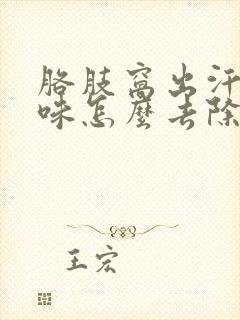 胳肢窝出汗
味怎麼去除
王宏